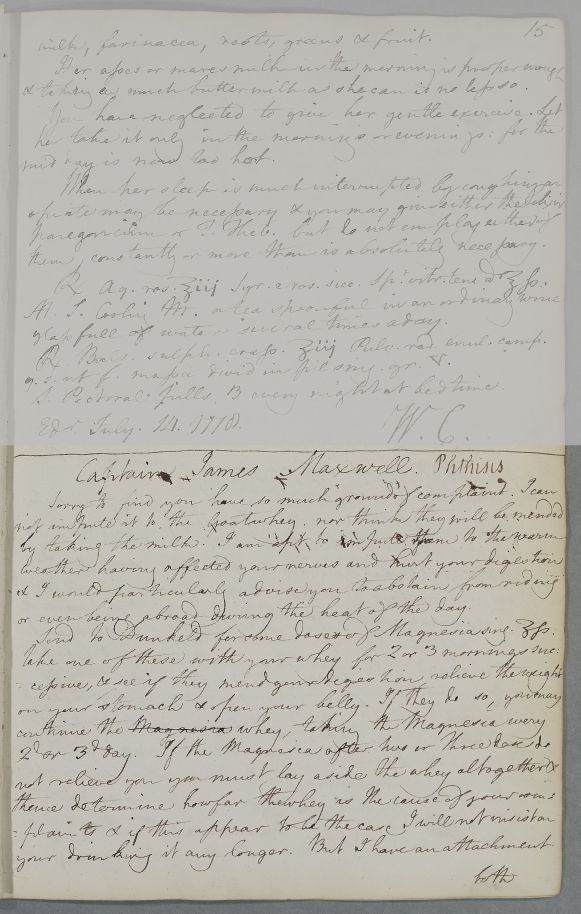 15
milk, farinacea, roots, greens & fruit.
Her asses or mares milk in the morning is proper enough
& taking as much butter milk as she can is no less so.
You have neglected to give her gentle exercise. Let
her take it only in the mornings or evenings: for the
mid day is now too hot.
When her sleep is much interrupted by coughing an
opiate may be necessary & you may give either the Elixir
Paregoricum or T. Theb. but do not employ either of
them, constantly or more than is absolutely necessary.
℞ Aq. ros. ʒiij Syr. e ros. sicc. Sp. vitr. ten. a ʒſs.
M. S. Cooling Mr. a tea spoonful in an ordinary wine
glass full of water several times a day.
℞ Bals. sulph. crass. ʒiij Pulv. rad. enul. camp.
q. s. ut f. massa divid in pil sing. gr. v.
S. Pectoral pills, 3 every night at bedtime.
Edr. July. 14. 1778. W. C.
Captain James Maxwell. Phthisis
Sorry to find you have so much ground of complaint. I can
not impute it to the Goatwhey. nor think they will be mended
by taking the milk. I am apt to impute them to the warm
weather having affected your nerves and hurt your digestion
& I would particularly advise you to abstain from riding
or even being abroad during the heat of the day.
Send to Dunkeld for some doses of Magnesia sing. ʒſs.
take one of these with your whey for 2 or 3 mornings suc:
:cessive, & see if they mend your digestion, relieve the weight
on your stomach & open your belly. If they do so, you may
continue the Magnesia whey, taking the Magnesia every
2d or 3d day. If the Magnesia after two or three doses do
not relieve you you must lay aside the whey altogether &
thence determine how far the whey is the cause of your com:
:plaints & if this appear to be the case I will not insist on
your drinking it any longer. But I have an attachment
both